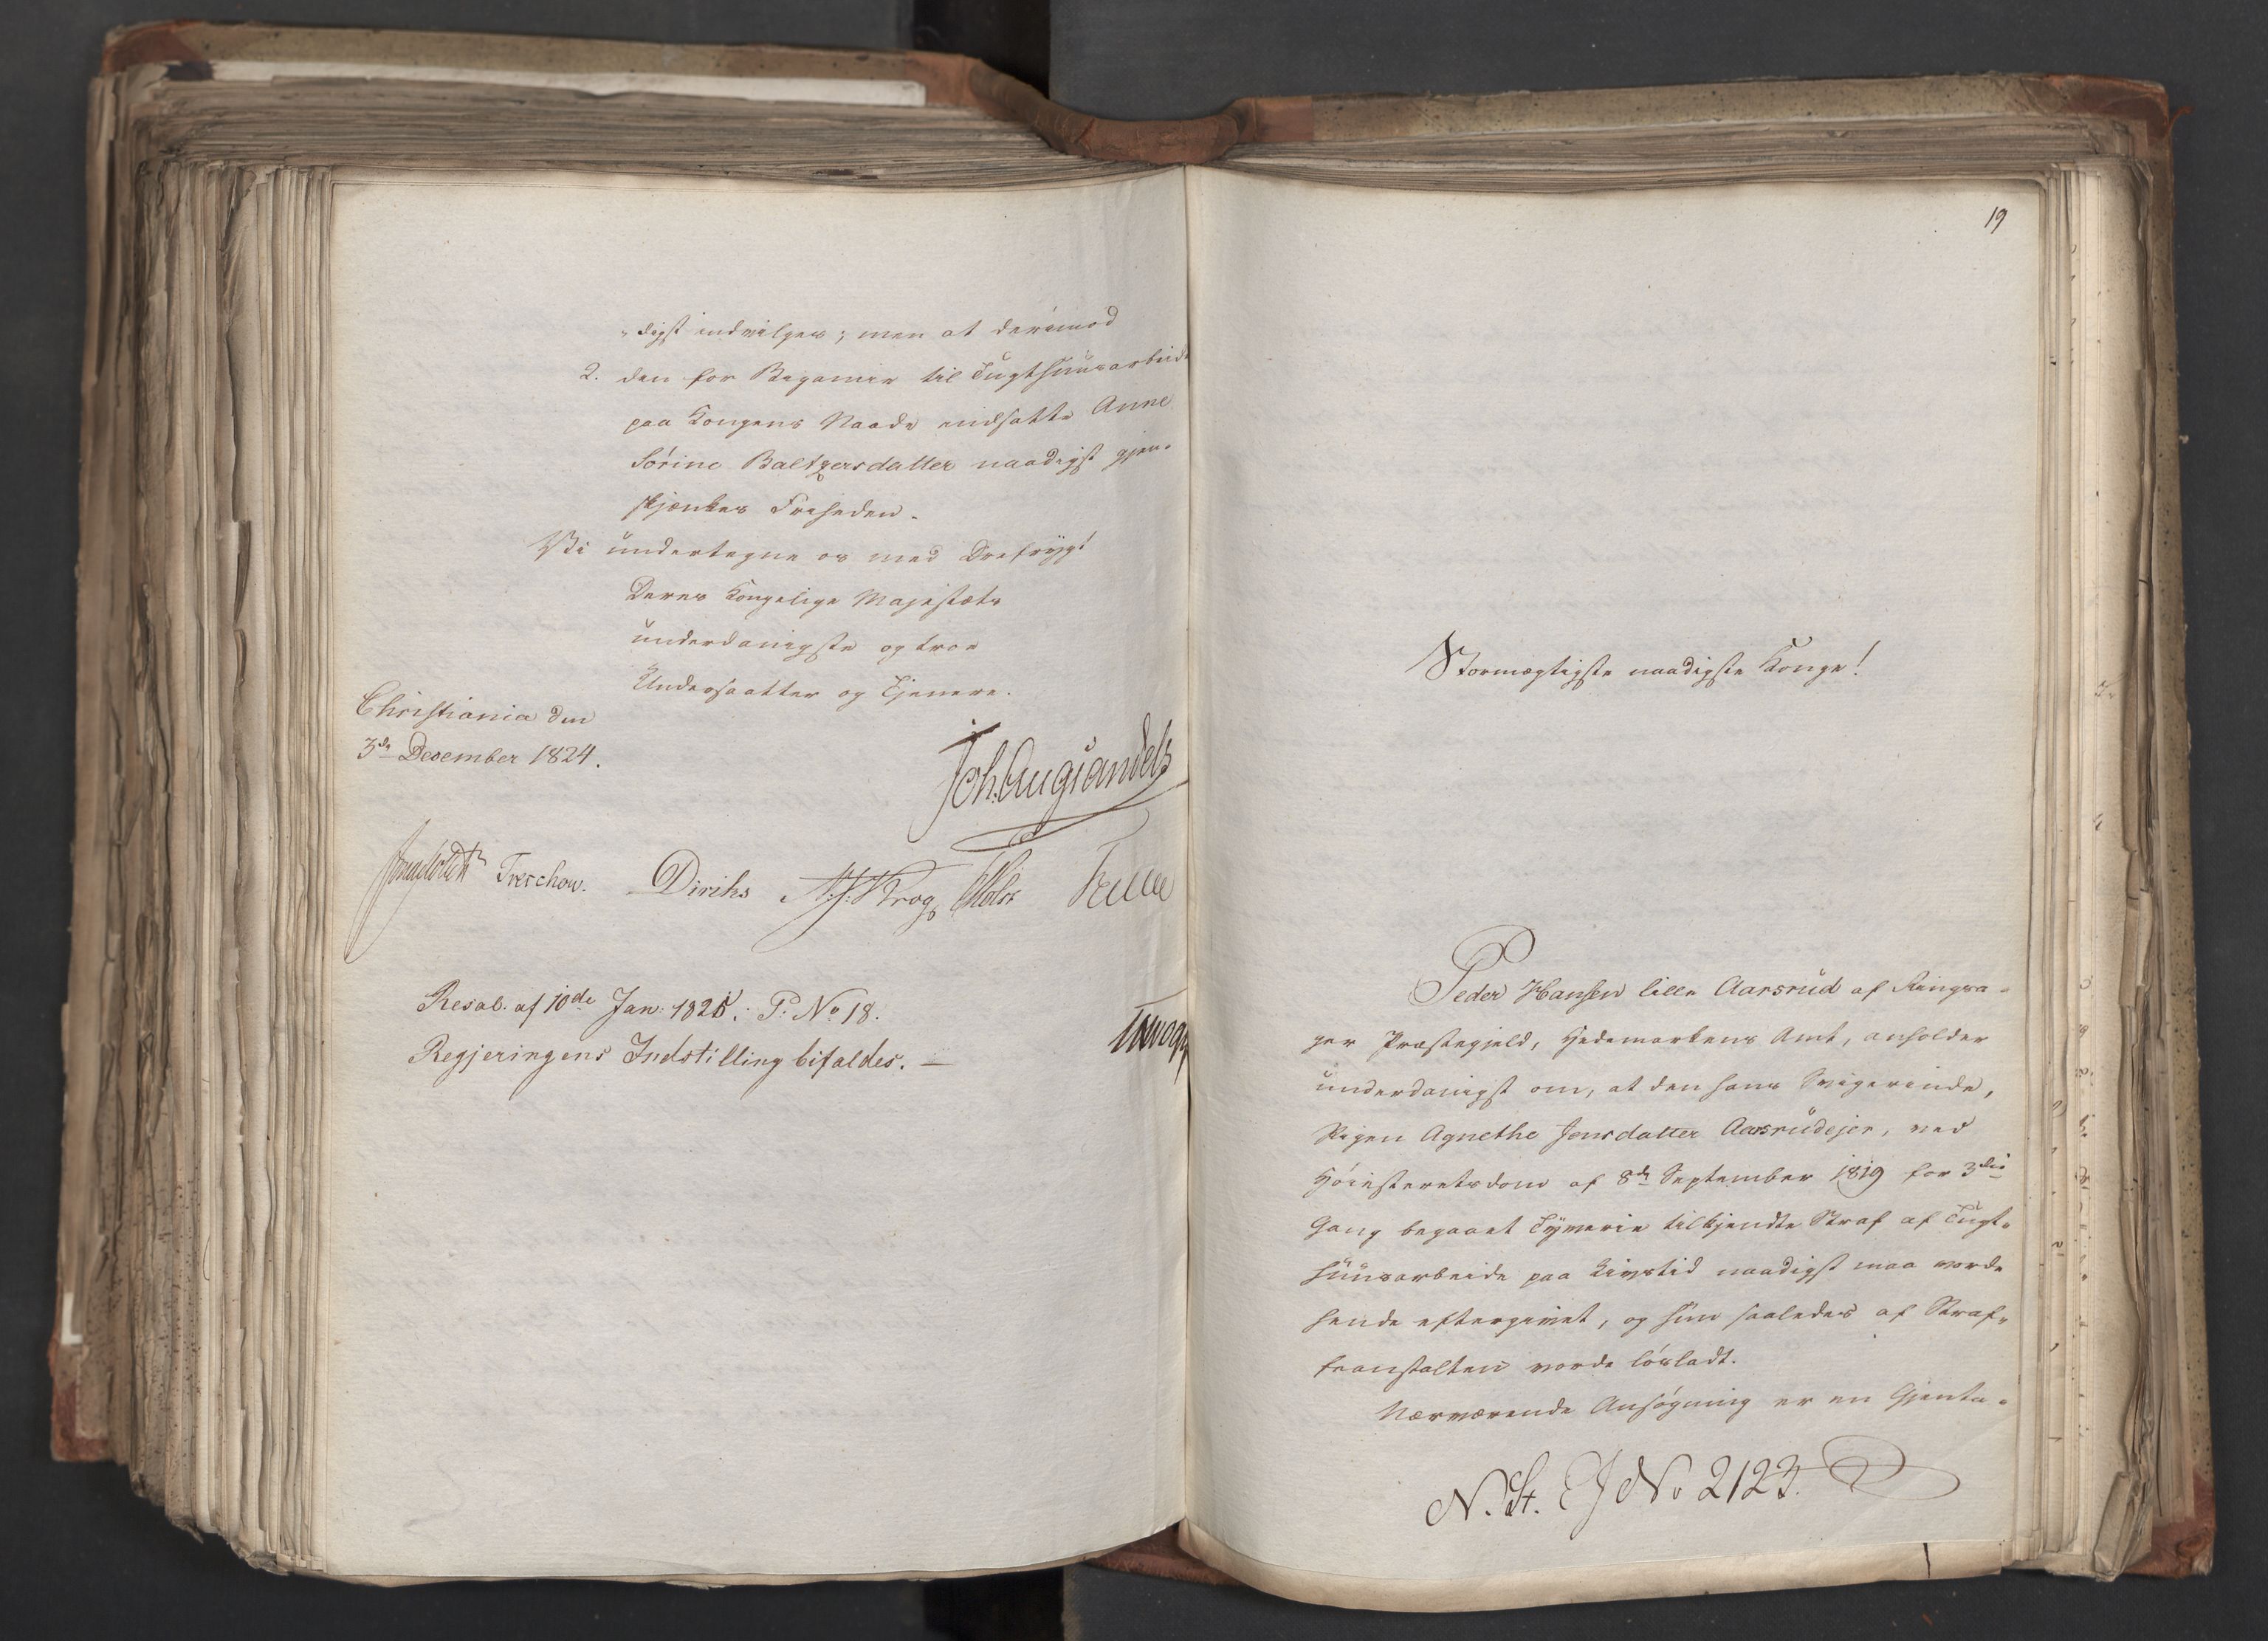 „digst indvilges; men at derimod
2. den for Bigamie til Tugthuusarbeide
paa Kongens Naade indsatte Anne
Sörine Baltzersdatter naadigst gjen-
skjænkes Friheden.
Vi undertegne os med Ærefrygt
Deres Kongelige Majestæts
underdanigste og troe
Undersaatter og Tjenere.
Christiania den
3de December 1824.
Joh. Aug Sandels
Treschow. Diriks Krog Holst
Resol. af 10de Jan. 1825. P. No 18.
Regjeringens Indstilling bifaldes. —
19
Stormægtigste naadigste Konge!
Peder Hansen lille Aarsrud af Ringsa-
ger Præstegjeld, Hedemarkens Amt, anholder
underdanigst om, at den hans Svigerinde,
Pigen Agnethe Jensdatter Aarsrudejer, ved
Höiesteretsdom af 8de September 1819 for 3die
Gang begaaet Tyverie tilkjendte Straf af Tugt-
huusarbeide paa Livstid naadigst maa vorde
hende eftergivet, og hun saaledes af Straf-
feanstalten vorde lösladt.
Nærværende Ansögning er en Gjenta-
N. St. J No 2123.